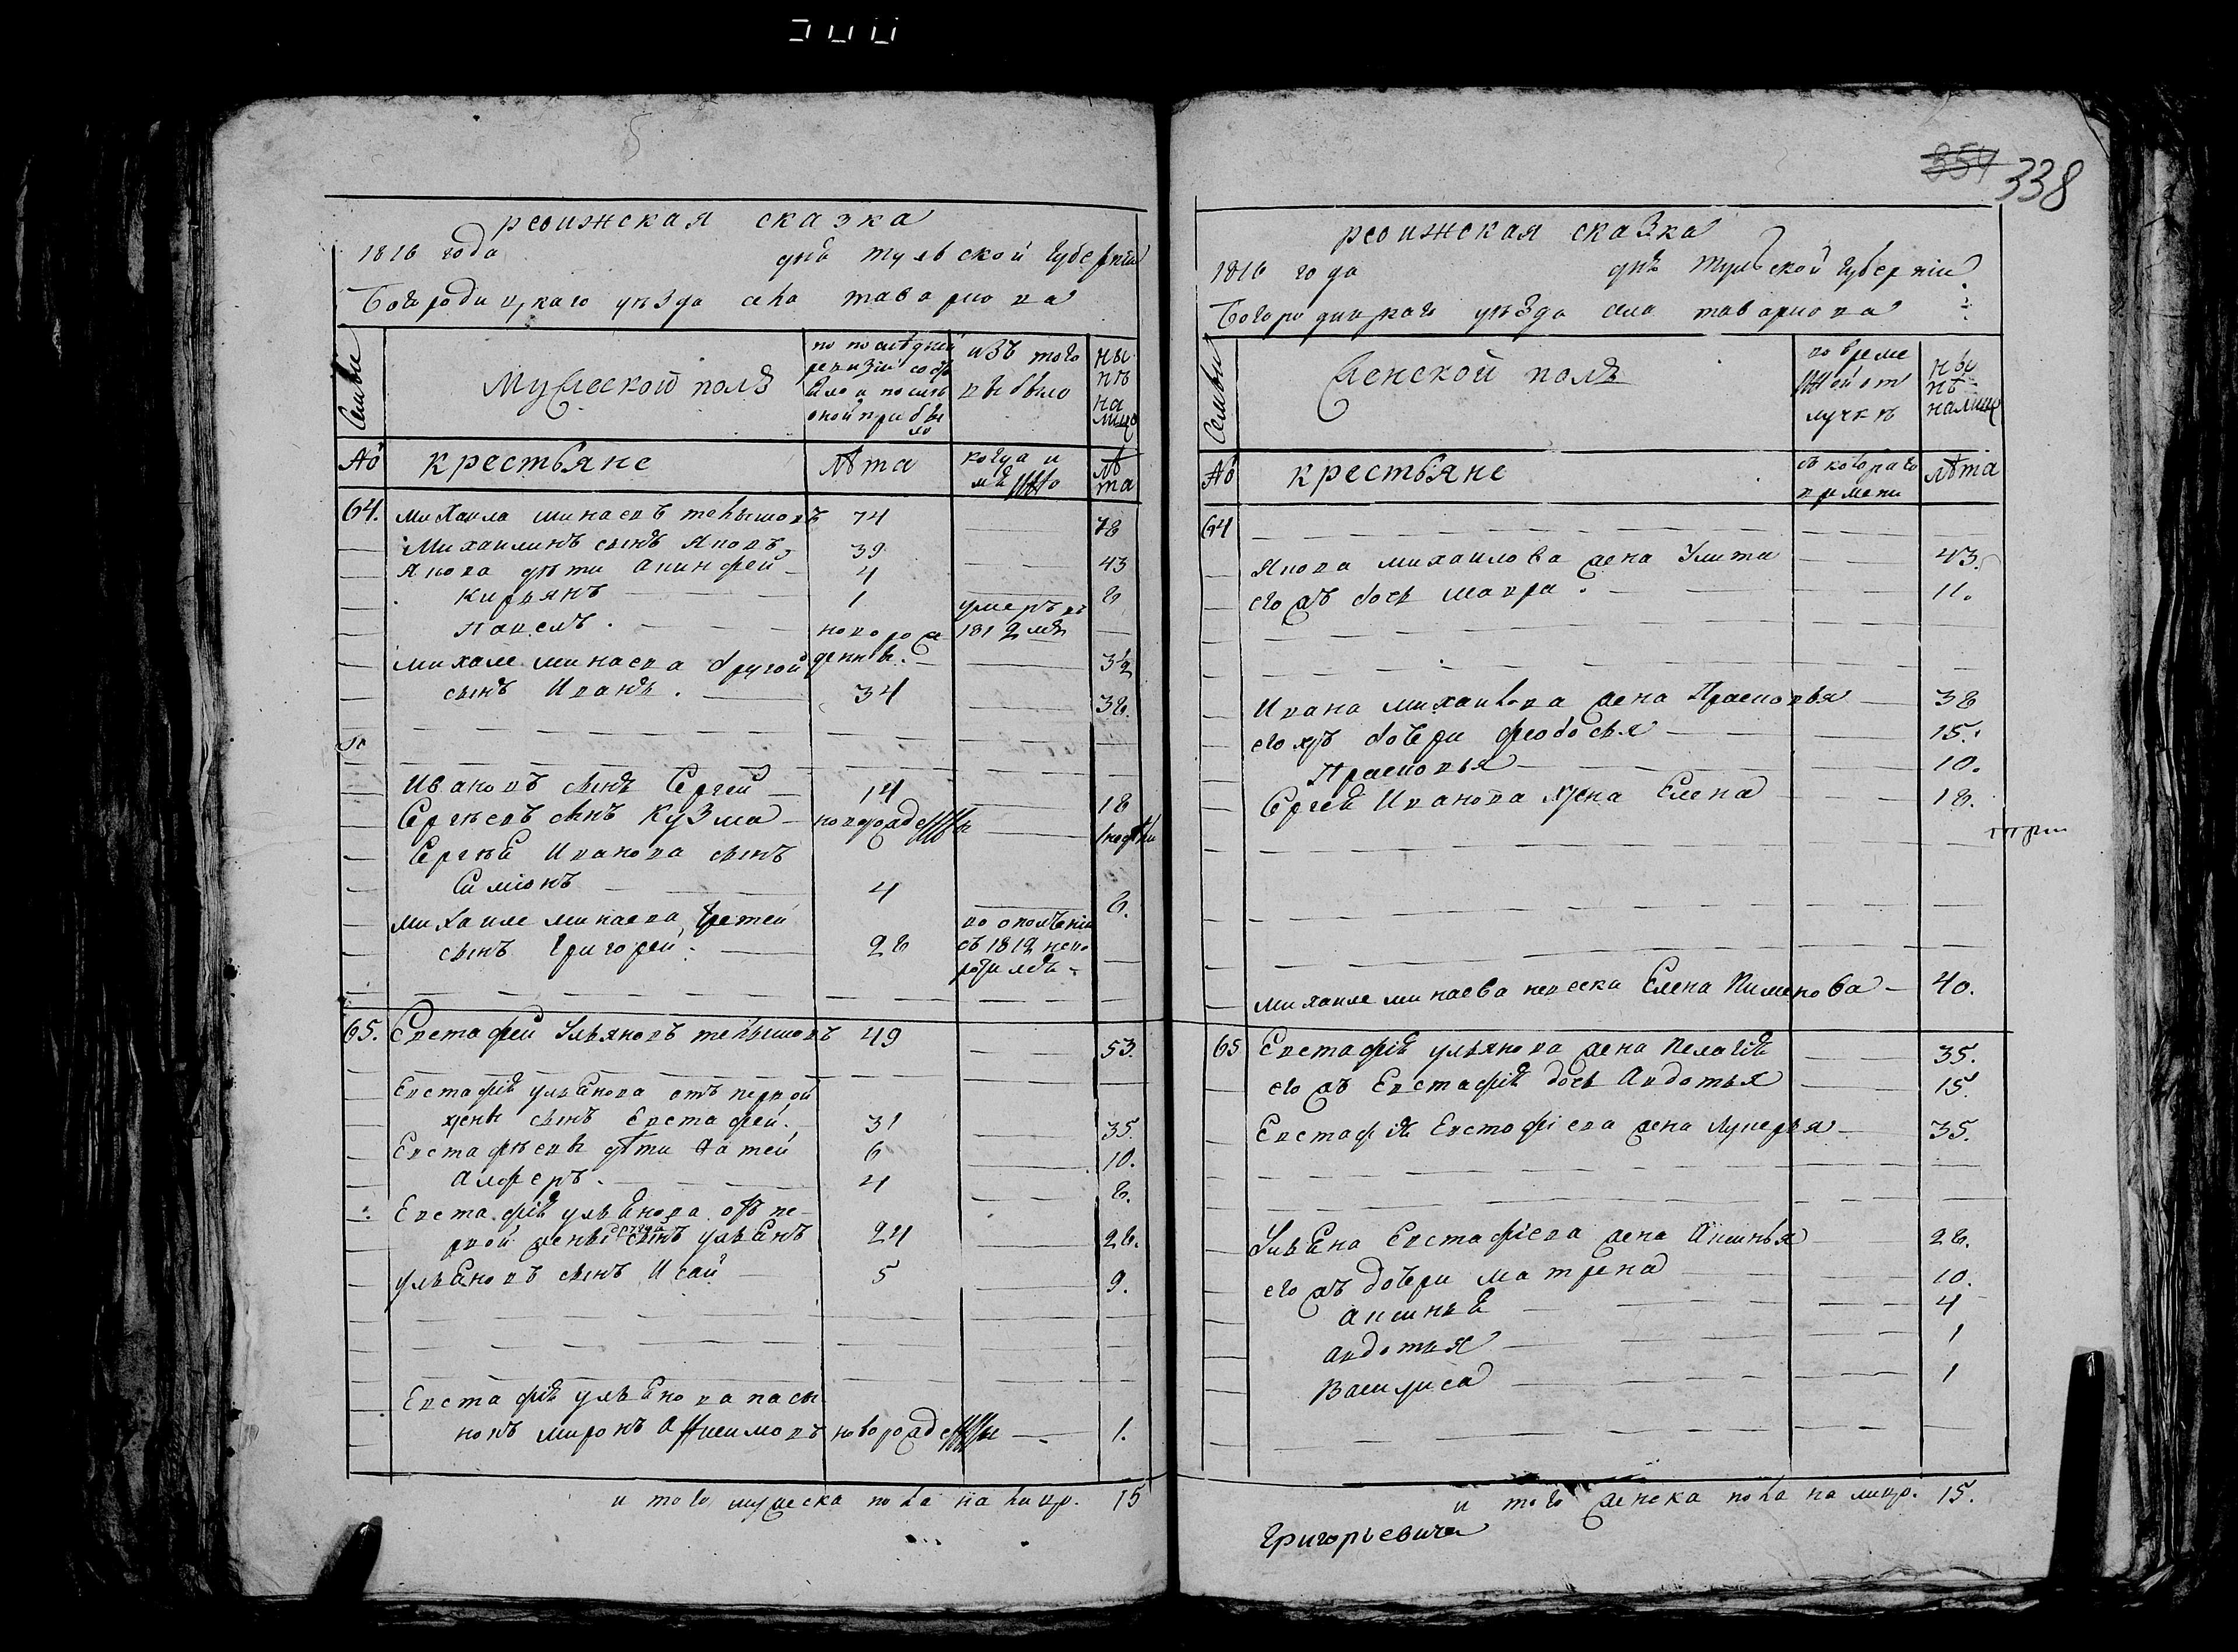 ревижская сказка
1816 года дня тульской губернїи
Богородицкаго уѣзда села таваркова
Семьи
Мужеской полъ
по последней
ревизїи состо
яло и после
оной прибы
ло
изъ того
выбыло
ны
нѣ
на
лицо
№ крестьяне лѣта когда и
лѣ
та
64. Михаила минаевъ телышовъ 74 78
Михаилинъ сынъ Яковъ 39 43
Якова дѣти Акинфей 4 8
Кирьянъ 1 умеръ въ
Павелъ новорож 1812 мъ
денны 3½
михаиле минаева другой
сынъ Иванъ 34 38.
Ивановъ сынъ Сергей 14 18
Сергѣевъ сынъ Кузма новорожденны 1 недѣли
Сергѣя Иванова сынъ
Симіонъ 4 8.
михаиле минаева третей во ополченїи
сынъ Григорей 28 съ 1812 нево
ротился
65. Евстафей Ульяновъ телышовъ 49 53.
Евстафія ульянова отъ первой
жены сынъ Евстафей. 31 35.
Евстафѣевы дѣти Фатей 6 10.
Алферъ 4 8.
Евстафія ульянова отъ пе-
рвой жены другой сынъ ульянъ 24 28.
ульяновъ сынъ Исай 5 9.
Евстафія ульянова пасы
нокъ миронъ Анисимовъ новорожденны 1.
итого мужеска пола на лицо. 15
354 338
ревижская сказка
1816 года дня тульской губерніи
Богородицкаго уѣзда села таваркова
Семьи
Женской полъ
во време
нной от
лучкѣ
ны
нѣ
налицо
№ крестьяне съ котораго
времени лѣта
64
Якова михаилова жена Улита 43.
его жъ дочь мавра 11.
Ивана михаилова жена Прасковья 38
его жъ дочери феодосья 15.
Прасковья 10.
Сергея Иванова жена Елена 18.
михаиле минаева невеска Елена Пименова 40.
65 Евстафія ульянова жена Пелагія 35.
его жъ Евстафія дочь Авдотья 15.
Евстафія Евстофіева жена Лукерья 35.
Ульяна Евстафіева жена Аксинья 28.
его жъ дочери матрена 10.
аксинья 4
авдотья 1
Василиса 1
итого женска пола на лицо. 15.
Григорьевича